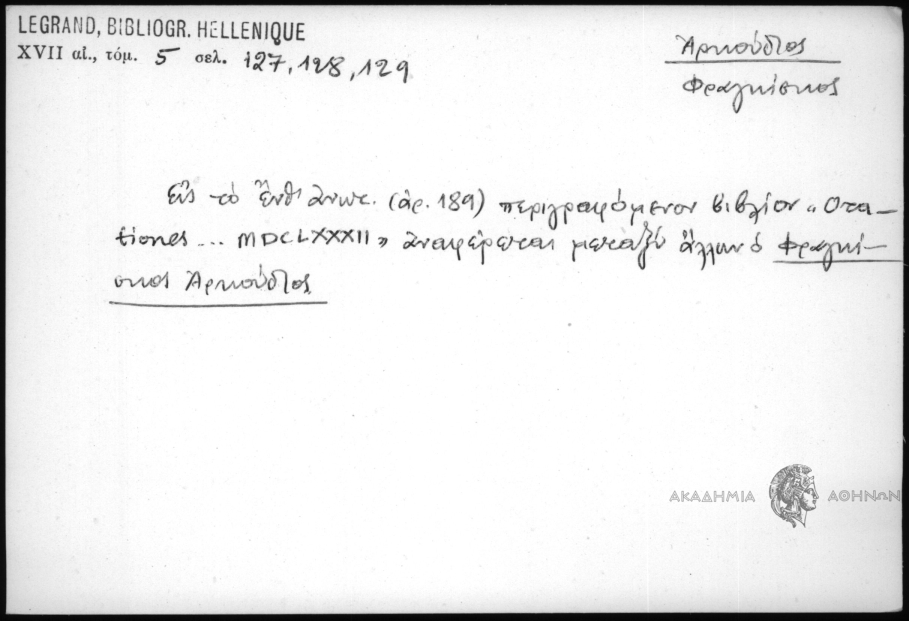 LEGRAND, BIBLIOGR. HELLENIQUE
XVII αἰ., τόμ. 5 σελ. 127, 128, 129
Ἀρκούδιος
Φραγκίσκος
Εἰς τὸ ἔνθ' ἀνωτ. (ἀρ. 189) περιγραφόμενον βιβλίον «Ora-
tiones ... MDCLXXXII» ἀναφέρεται μεταξὺ ἄλλων ὁ Φραγκί-
σκος Ἀρκούδιος
ΑΚΑΔΗΜΙΑ ΑΘΗΝΩΝ